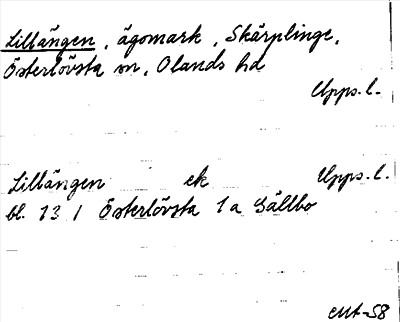 Lillängen, ägomark, Skärplinge,
Österlövsta sn, Olands hd
Upps. l.
Lillängen ek Upps. l.
bl. 13 I Österlövsta 1a Gällbo
CMt-58